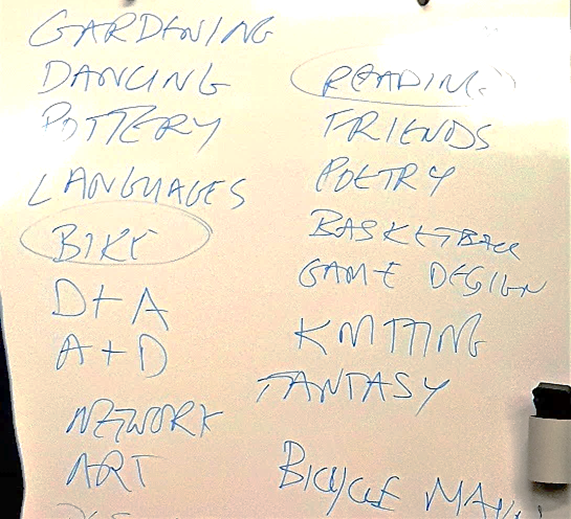 GARDENING
DANCING
POTTERY
LANGUAGES
BIKE
D+A
A+D
NETWORK
ART
READING
FRIENDS
POETRY
BASKETBALL
GAME DESIGN
KNITTING
FANTASY
BICYCLE